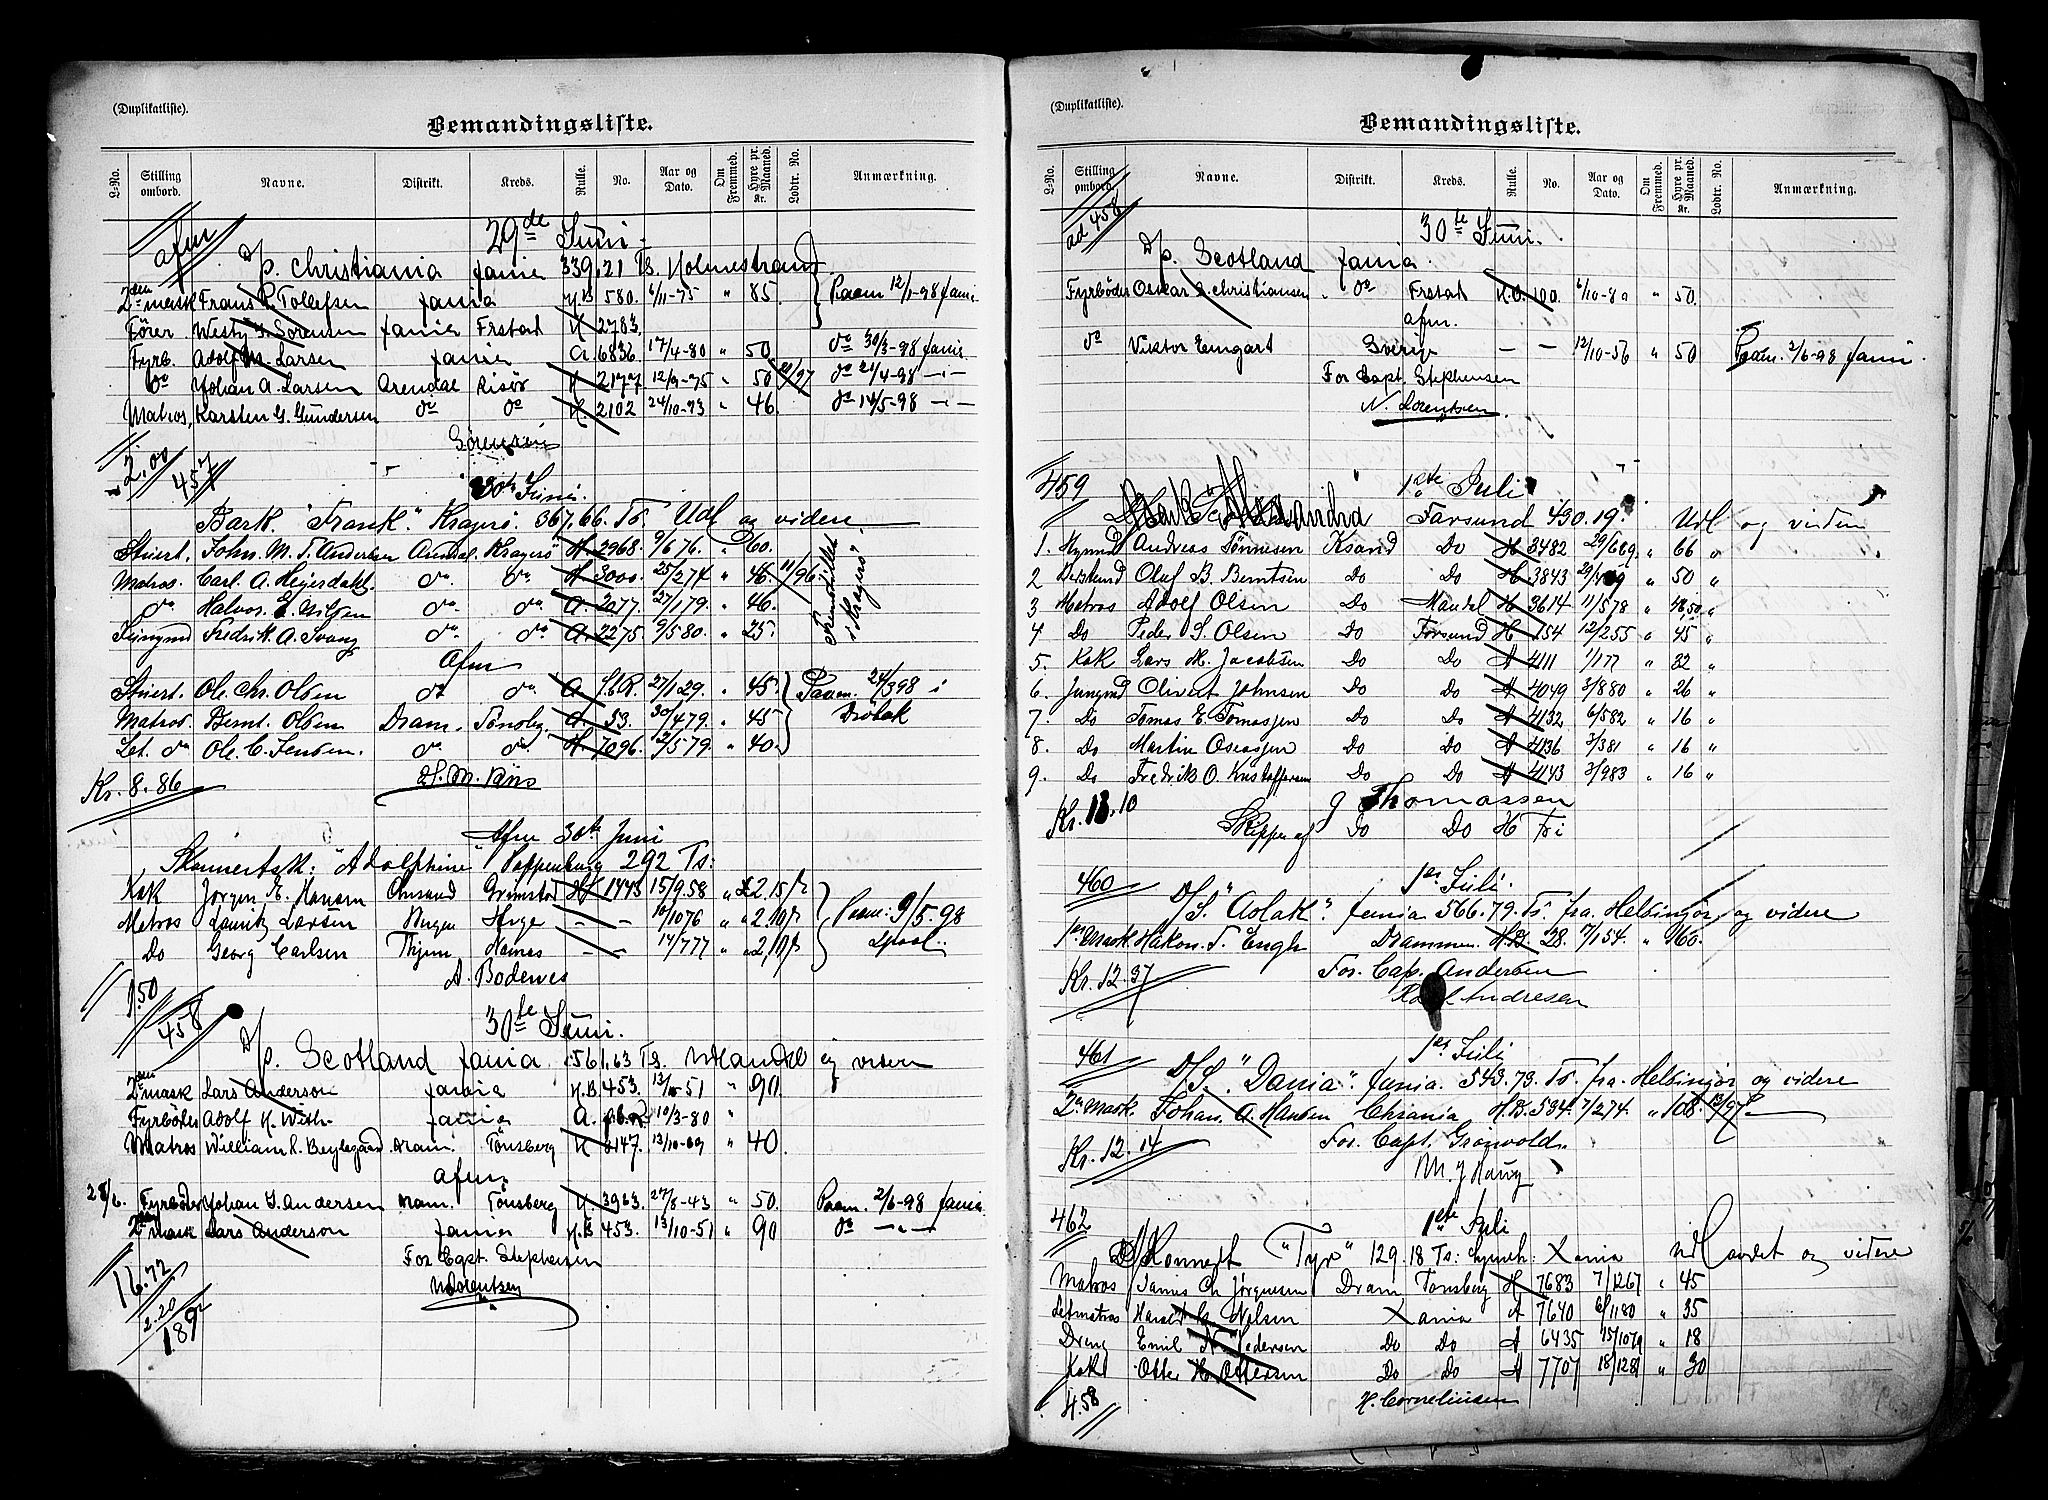 (Duplikatliste).
Bemandingsliste.
L-No. Stilling ombord. Navne. Distrikt. Kreds. Rulle. No. Aar og Dato. Om Fremmed. Hyre pr. Maaned. Kr. Lodtr. No. Anmærkning.
afm 29de Juni
D/p. Christiania Xania 339,21 Ts. Holmestrand
2den mask Frans R. Tollefsen Xania H.B 580. 6/11-75 " 85. Paam 12/1-98 Xania
Fører Westy J. Sørensen Xania Frstad H 2783.
Fyrb. Adolf M. Larsen Xania A. 6836 17/4-80 " 50 do 30/3-98 Xania
do Johan A. Larsen Arendal Risør H 2177 12/9-75 " 50 21/97 do 21/4-98 — " —
Matros, Karsten G. Gundersen do do H. 2102 24/10-73 " 46 do 14/5-98 — " —
2.00 Sørensen
457 30te Juni.
Bark. "Frank". Kragerø. 367,66. Ts. Udl og videre.
Stuert. John. M. T. Andersen Arendal. Kragerø H. 2968. 9/676. " 60.
Matros. Carl. A. Heyerdahl. do. do. H 3000. 25/274 " 46. 11/96
do. Halvor. E. Nilsen do. do. A. 2077. 27/179. " 46.
Jungmd Fredrik. A. Svang do. do A. 2275. 9/580. " 25.
Fremstillet i Kragerø.
Afm
Stuert. Ole. Chr. Olsen do do. A S.R. 27/129. " 45. Paam. 24/398 i
Matros. Bernt. Olsen Dram. Tønsbg. A. 53. 30/479. " 45 Drøbak
Let. do Ole. C. Jensen. do. do. H. 7096. 2/579. " 40.
Kr. 8.86
Afm 30te Juni
Skonnertsk: "Adolphine" Pappenburg 292 Ts:
Kok Jørgen E. Hansen Chrsand Grimstad H 1443 15/958 " £ 2.15/
Matros Lauritz Larsen Bergen — — 10/1076 " " 2.10/ Paam: 9/5.98
Do Georg Carlsen — — 14/777 " " 2.10/
1.50 A. Bodewes
458 30te Juni.
D/p. Scotland Xania 561,63 Ts. Udlandet og videre
2den mask Lars Anderson Xania H.B 453. 13/10-51 " 90
Fyrbøder Adolf H. With. Xania A. 10/3-80 "
Matros William R. Beylegaard Dram. Tønsberg H 2147. 13/10-69 " 40
afm.
28/6. Fyrbøder Johan J. Andersen Dram. Tønsberg H. 3963. 27/8-43 " 50. Paam. 2/6-98 Xania
2den mask Lars Anderson Xania H.B 453. 13/10-51 " 90 do — " —
For Capt. Stephensen
16.72 N Lorentsen
2.20
189

(Duplikatliste).
Bemandingsliste.
L-No. Stilling ombord. Navne. Distrikt. Kreds. Rulle. No. Aar og Dato. Om Fremmed. Hyre pr. Maaned. Kr. Lodtr. No. Anmærkning.
ad 458 30te Juni.
D/p. Scotland Xania.
Fyrbøder Oscar L. Christiansen do Frstad H.O. 100. 6/10-80 " 50.
afm.
do Viktor Emgart Sverige — — 12/10-56 " 50 Paam. 2/6-98 Xania.
For Capt. Stephensen
N. Lorentsen.
459 1ste Juli
Bark "Alexandra Farsund 430.19. Udl og videre
1. Styrmd Andreas Tønnesen Ksand Do H 3482 29/669 " 66 "
2 Bestmd Oluf B. Berntsen Do Do H 3843 " 50 "
3 Matros Adolf Olsen Do Mandal H 3614 11/578 " 48,50 "
4 Do Peder S. Olsen Do Farsund H 154 12/255 " 45 "
5. Kok Lars M. Jacobsen Do Do A 4111 1/177 " 32 "
6. Jungmd Olivert Johnsen Do Do A 4049 3/880 " 26 "
7. Do Tomas E. Tomassen Do Do A 4132 6/582 " 16 "
8. Do Martin Oseassen Do Do A 4136 3/381 " 16 "
9. Do Fredrik O. Kristoffersen Do Do A 4143 3/983 " 16 "
Kr. 13.10 g Thomassen
Skipper af Do Do H Fri
460 1ste Juli.
D/S. "Aolak". Xania 566.79. Ts. fra. Helsingør og videre
1ste Mask. Hakon. T. Engh Drammen. H.B. 28. 7/154. " 160.
Kr. 12.37 For. Cap. Andersen
Andresen
461 1ste Juli
D/S. "Dania". Xania. 543.73. Ts. fra. Helsingør og videre
2den Mask. Johan. A. Hansen Chrania. H.B. 534. 7/274. " 108. 13/97.
Kr. 12.14 For. Capt. Grønvold.
M. J Haug
462 1ste Juli
Skonnert "Tyr" 129.18 Ts: Xania udlandet og videre
Matros Janus Ch Jørgensen Dram Tønsberg H 7683 7/1267 " 45
Letmatros Harald G. Nilsen Xania A 7640 6/1180 " 35
Dreng Emil N. Pedersen Do Do A 6435 15/1079 " 18
Kok Otter H. Ottersen Do Do A 7707 18/1281 " 30
4.58 H. Corneliussen